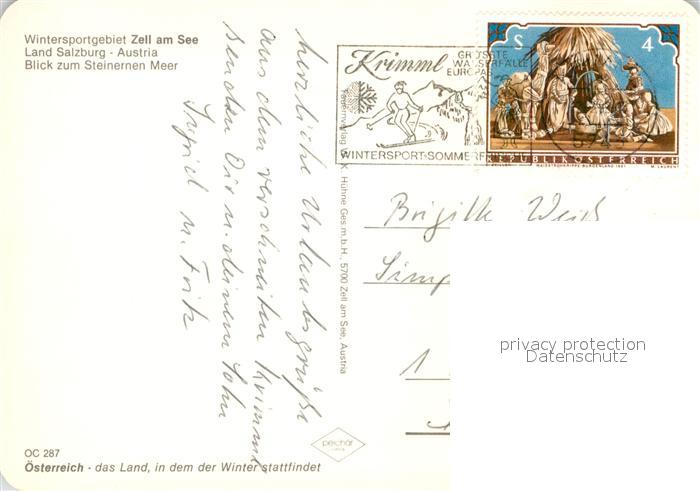 Wintersportgebiet Zell am See
Land Salzburg - Austria
Blick zum Steinernen Meer
herzliche Urlaubsgrüße
aus dem verschneiten Krimml
senden Dir u. deinem Sohn
Ingrid u. Fritz
OC 287
Österreich - das Land, in dem der Winter stattfindet
K. Hühne Ges.m.b.H., 5700 Zell am See, Austria
Krimml
GRÖSSTE
WASSERFÄLLE
EUROPAS
WINTERSPORT-SOMMERFR
S 4
REPUBLIK ÖSTERREICH
Brigitte
1
privacy protection
Datenschutz